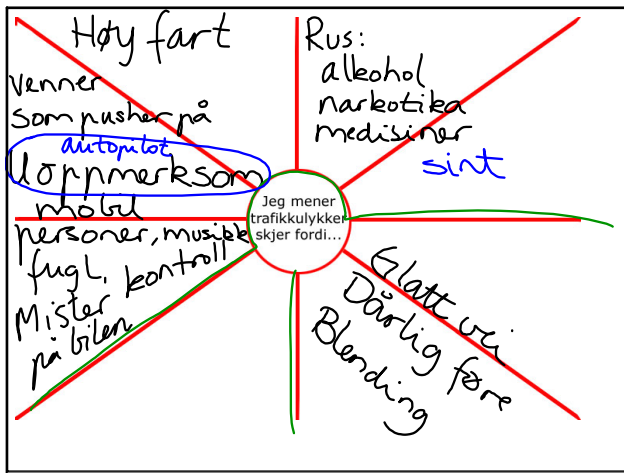 Høy fart
venner
som pusher på
autopilot
Uoppmerksom
mobil
personer, musikk
fugl,
Mister kontroll
på bilen
Rus:
alkohol
narkotika
medisiner
sint
Jeg mener
trafikkulykker
skjer fordi...
Glatt vei
Dårlig føre
Blending